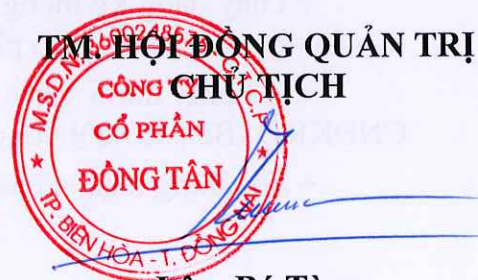 TM. HỘI ĐỒNG QUẢN TRỊ
CHỦ TỊCH
M.S.D.N: C.T.C.P
CÔNG TY
CỔ PHẦN
ĐỒNG TÂN
TP. BIÊN HÒA - T. ĐỒNG NAI